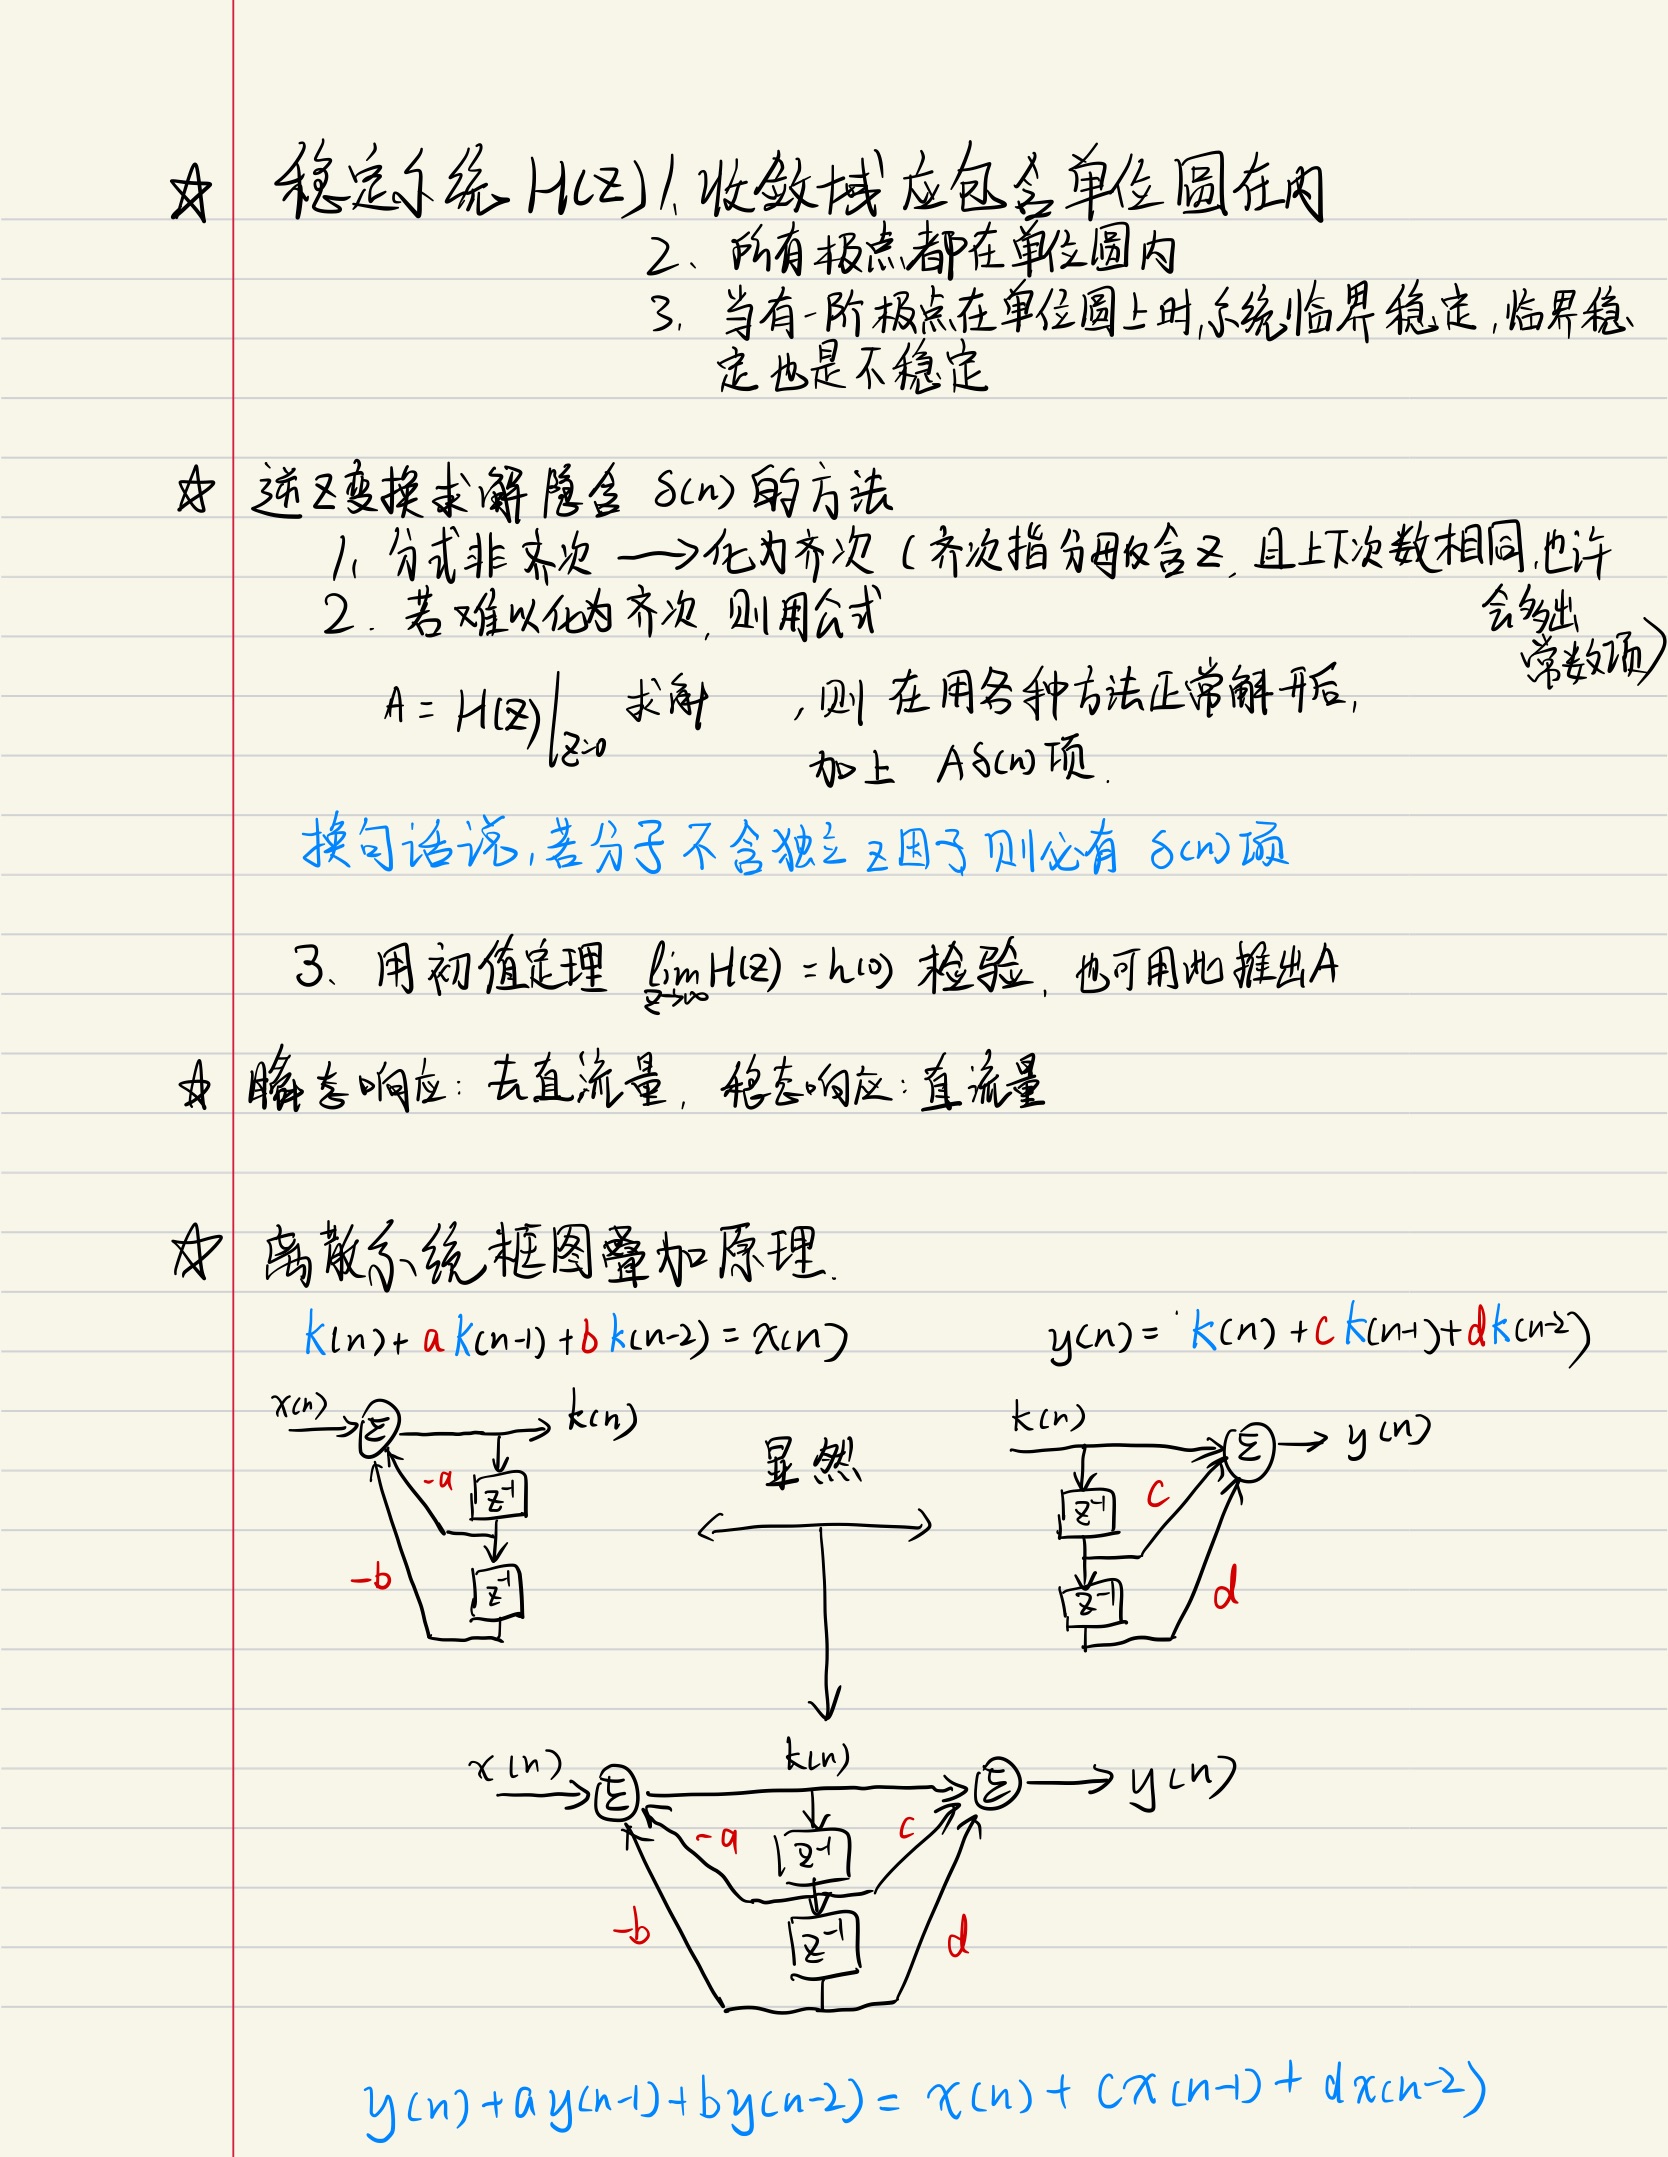 ☆ 稳定系统 H(Z) 1. 收敛域应包含单位圆在内
2、所有极点都在单位圆内
3. 当有一阶极点在单位圆上时,系统临界稳定,临界稳
定也是不稳定
☆ 逆Z变换求解隐含 δ(n) 的方法
1. 分式非齐次 → 化为齐次 (齐次指分母仅含Z, 且上下次数相同,也许
会多出
常数项)
2. 若难以化为齐次,则用公式
A = H(Z)|z=0 求解 ,则在用各种方法正常解开后,
加上 Aδ(n)项.
换句话说,若分子不含独立z因子则必有 δ(n)项
3、用初值定理 lim H(Z) = h(0) 检验,也可用此推出A
z→∞
☆ 瞬态响应: 去直流量, 稳态响应: 直流量
☆ 离散系统框图叠加原理.
k(n)+ak(n-1)+bk(n-2)=x(n)
y(n)= k(n)+ck(n-1)+dk(n-2)
x(n) Σ k(n)
-a z⁻¹
-b z⁻¹
显然
k(n) Σ y(n)
z⁻¹ c
z⁻¹ d
x(n) Σ k(n) Σ y(n)
-a z⁻¹ c
-b z⁻¹ d
y(n)+ay(n-1)+by(n-2)= x(n)+cx(n-1)+dx(n-2)